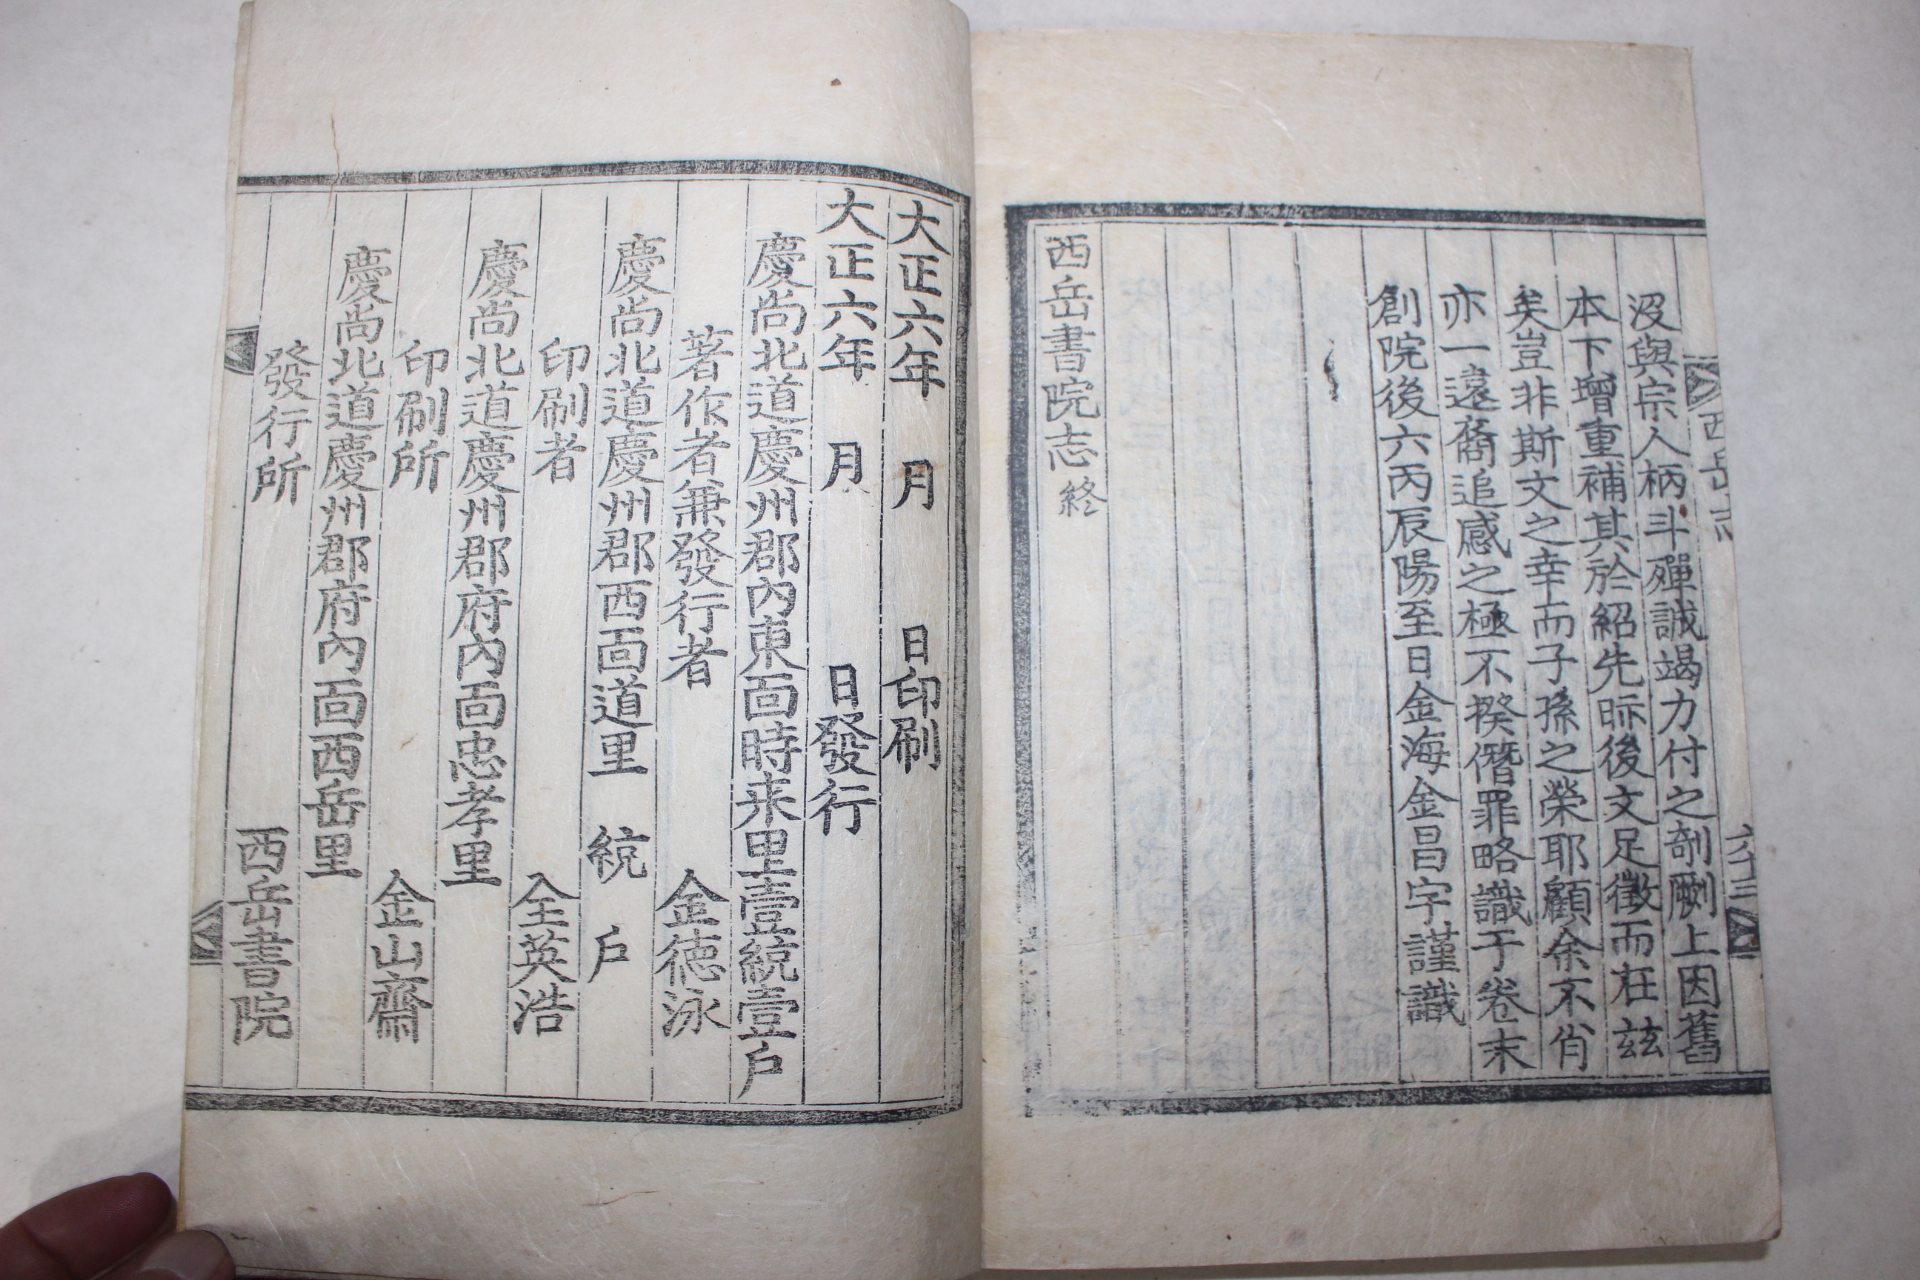 西岳志
六十三
沒與宗人柄斗殫誠竭力付之剞劂上因舊
本下增重補其於紹先眎後文足徵而在玆
矣豈非斯文之幸而子孫之榮耶顧余不肖
亦一遠裔追感之極不揆僭罪略識于卷末
創院後六丙辰陽至日金海金昌宇謹識
西岳書院志終
大正六年 月 日印刷
大正六年 月 日發行
慶尚北道慶州郡內東面時来里壹統壹戶
著作者兼發行者 金德泳
慶尚北道慶州郡西面道里 統 戶
印刷者 全英浩
慶尚北道慶州郡府內面忠孝里
印刷所 金山齋
慶尚北道慶州郡府內面西岳里
發行所 西岳書院